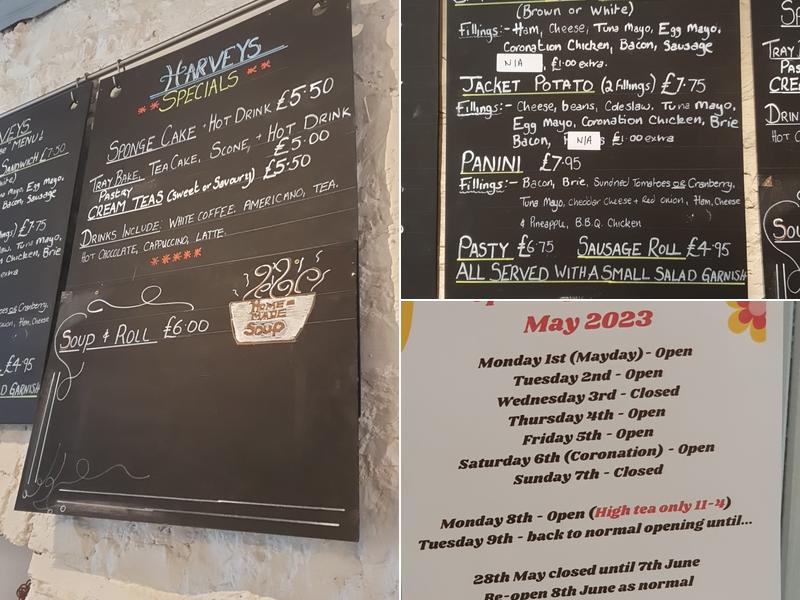 HARVEYS
SPECIALS
SPONGE CAKE + HOT DRINK £5.50
TRAY BAKE, TEA CAKE, SCONE, + HOT DRINK
Pastry £5.00
CREAM TEAS (Sweet or Savoury) £5.50
DRINKS INCLUDE: WHITE COFFEE, AMERICANO, TEA,
HOT CHOCOLATE, CAPPUCCINO, LATTE.
HOME-
MADE
SOUP
SOUP & ROLL £6.00
VEYS
MENU
SANDWICH £7.50
Mayo, Egg Mayo,
Bacon, Sausage
£7.75
Tuna Mayo,
Chicken, Brie
extra
Tomatoes or Cranberry,
onion, Ham, Cheese
£4.95
D GARNISH
(Brown or White)
Fillings:- Ham, Cheese, Tuna Mayo, Egg Mayo,
Coronation Chicken, Bacon, Sausage
N/A , £1.00 extra.
JACKET POTATO (2 fillings) £7.75
Fillings:- Cheese, beans, Coleslaw, Tuna Mayo,
Egg Mayo, Coronation Chicken, Brie
Bacon, N/A £1.00 extra
PANINI £7.95
Fillings:- Bacon, Brie, Sundried Tomatoes or Cranberry,
Tuna Mayo, cheddar Cheese + Red onion, Ham, Cheese
& Pineapple, B.B.Q. Chicken
PASTY £6.75 SAUSAGE ROLL £4.95
ALL SERVED WITH A SMALL SALAD GARNISH
SP
TRAY
PAST
CREA
DRIN
HOT C
SOU
May 2023
Monday 1st (Mayday) - Open
Tuesday 2nd - Open
Wednesday 3rd - Closed
Thursday 4th - Open
Friday 5th - Open
Saturday 6th (Coronation) - Open
Sunday 7th - Closed
Monday 8th - Open (High tea only 11-4)
Tuesday 9th - back to normal opening until...
28th May closed until 7th June
Re-open 8th June as normal